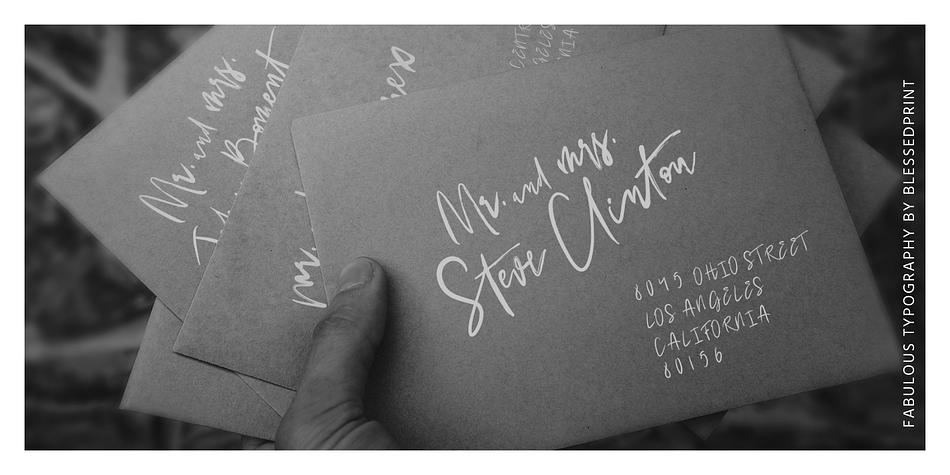 Mr. and mrs.
Boment
mr.
Mr. and mrs.
Steve Clinton
8045 OHIO STREET
LOS ANGELES
CALIFORNIA
80156
FABULOUS TYPOGRAPHY BY BLESSEDPRINT